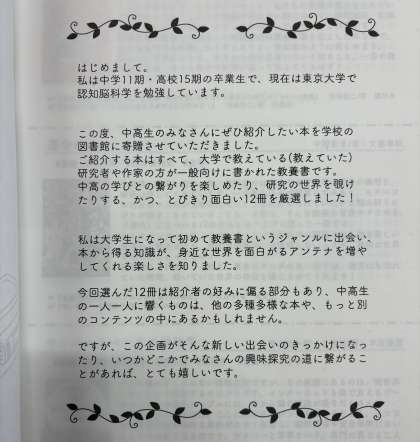 はじめまして。
私は中学11期・高校15期の卒業生で、現在は東京大学で
認知脳科学を勉強しています。
この度、中高生のみなさんにぜひ紹介したい本を学校の
図書館に寄贈させていただきました。
ご紹介する本はすべて、大学で教えている(教えていた)
研究者や作家の方が一般向けに書かれた教養書です。
中高の学びとの繋がりを楽しめたり、研究の世界を覗け
たりする、かつ、とびきり面白い12冊を厳選しました！
私は大学生になって初めて教養書というジャンルに出会い、
本から得る知識が、身近な世界を面白がるアンテナを増や
してくれる楽しさを知りました。
今回選んだ12冊は紹介者の好みに偏る部分もあり、中高生
の一人一人に響くものは、他の多種多様な本や、もっと別
のコンテンツの中にあるかもしれません。
ですが、この企画がそんな新しい出会いのきっかけになっ
たり、いつかどこかでみなさんの興味探究の道に繋がるこ
とがあれば、とても嬉しいです。